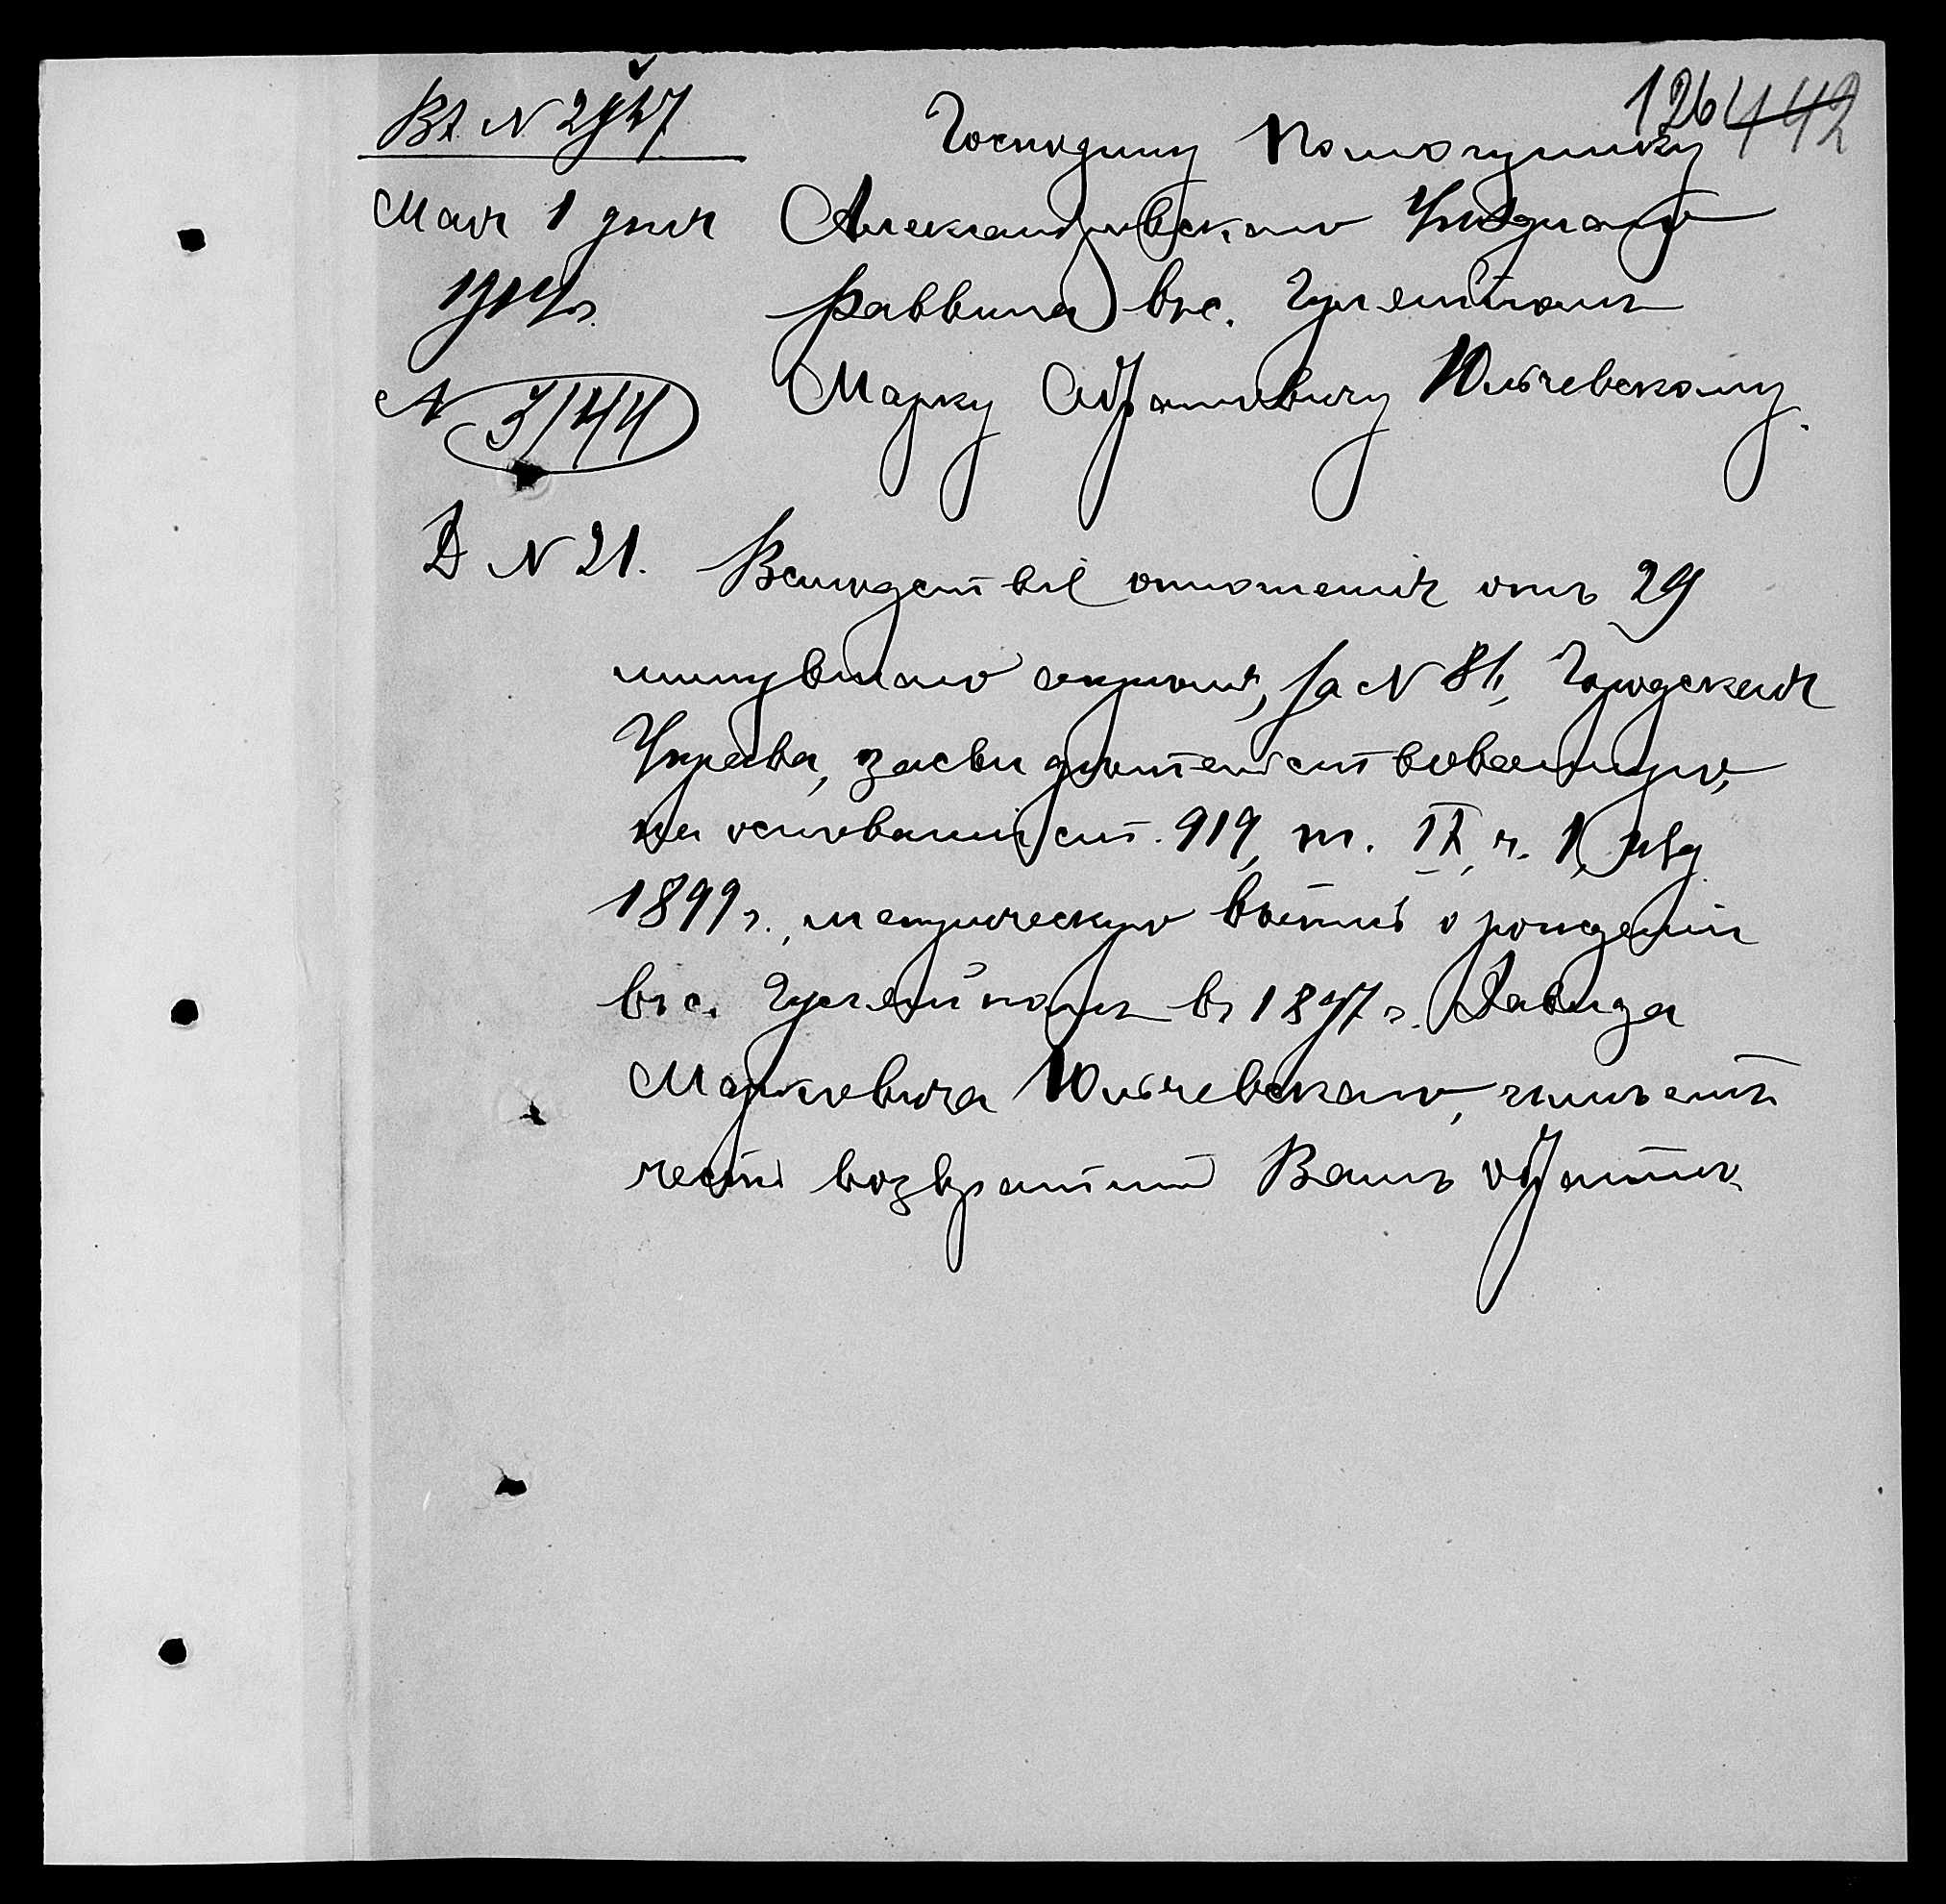 126 442
Вх. N 2927
Господину Помощнику
Мая 1 дня
Александровскаго Уѣзднаго
1914 г.
раввина въ с. Гуляйполѣ
N 3144
Марку Абрамовичу Юльчевскому.
Д N 21.
Вслѣдствіе отношенія отъ 29
минувшаго апрѣля, за N 81, Городская
Управа, засвидѣтельствованную,
на основаніи ст. 919, т. IX, ч. 1, изд.
1899 г., метрическую выпись о рожденіи
въ с. Гуляйполѣ въ 1897 г. Давида
Марковича Юльчевскаго, имѣетъ
честь возвратить Вамъ обратно.